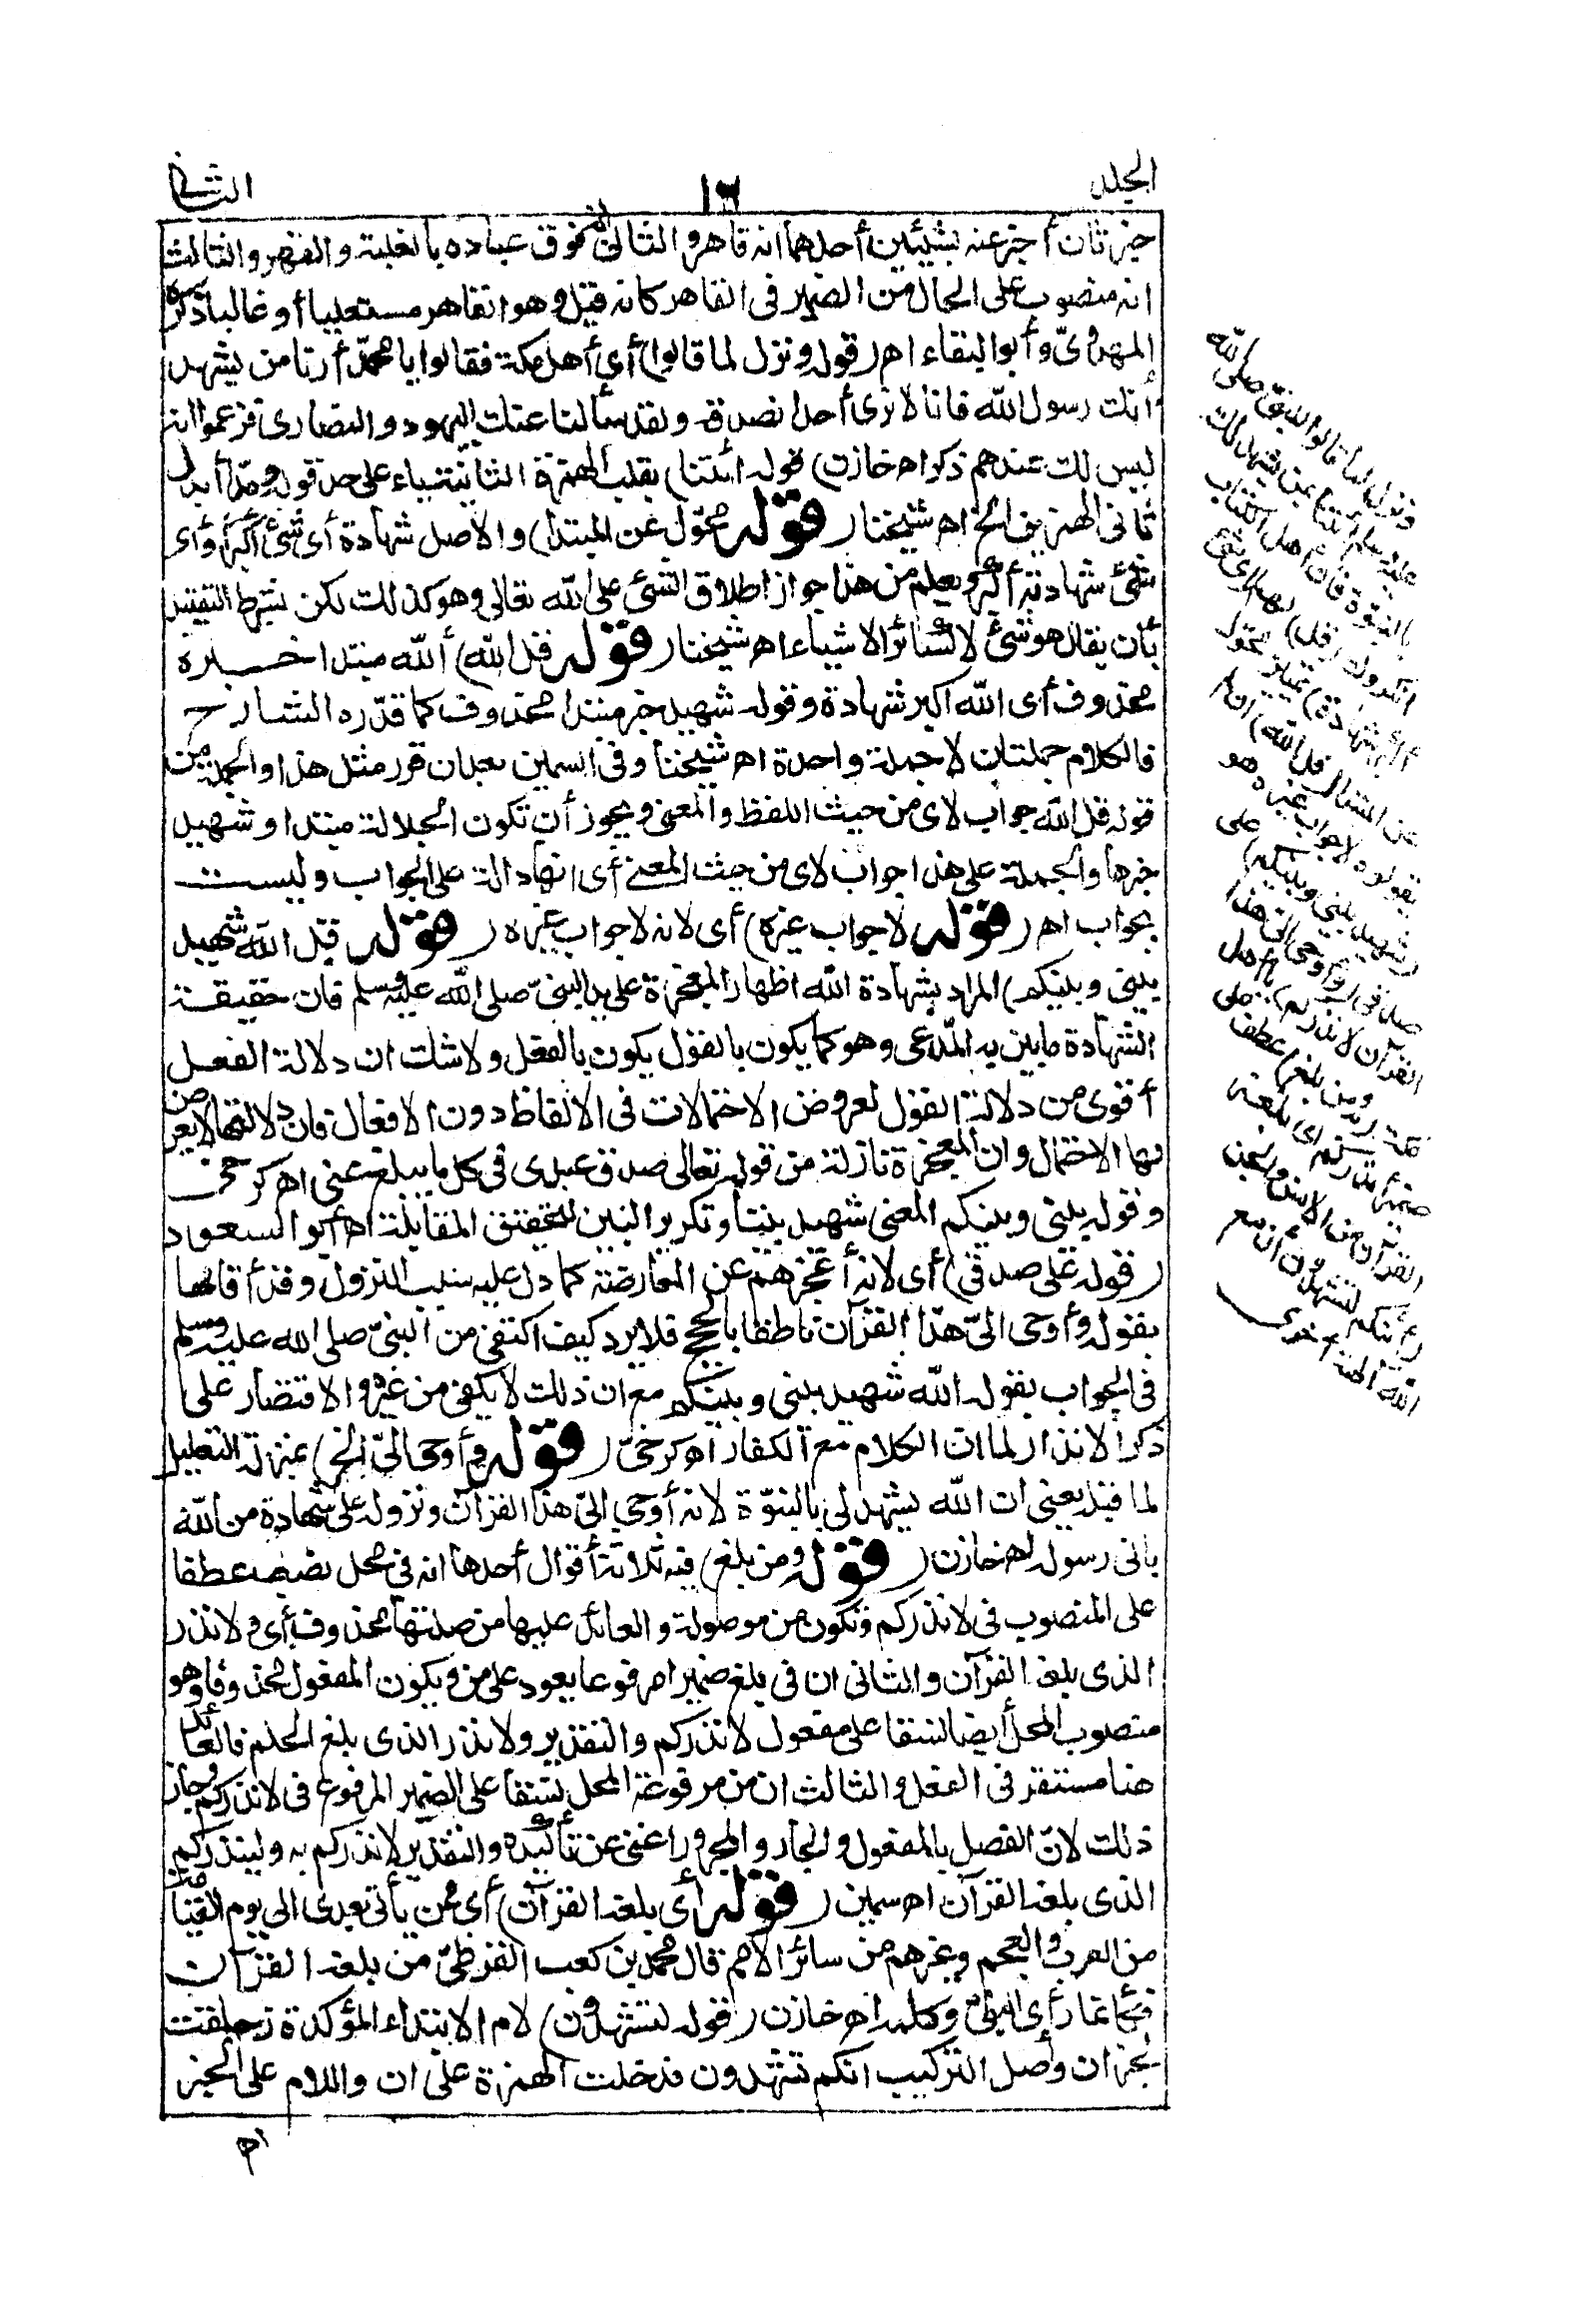 الجلد
١٦
الثاني
خبر ثان أخبر عنه بشيئين أحدهما انه قاهر والثاني انه فوق عباده بالغلبة والقهر والثالث
انه منصوب على الحال من الضمير فى القاهر كانه قيل وهو القاهر مستعليا أو غالبا ذكره
المهدوىّ وأبو البقاء اهـ (قوله ونزل لما قالوا) أى أهل مكة فقالوا يا محمّد أرنا من يشهد
أنك رسول الله فانا لا نرى أحدا نصدقه ولقد سألنا عنك اليهود والنصارى فزعموا انه
ليس لك عندهم ذكر اهـ خازن (قوله ائتنا) بقلب الهمزة الثانية ياء على حد قوله ومدّا أبدل
ثانى الهمزين الخ اهـ شيخنا (قوله محوّل عن المبتدا) والاصل شهادة أى شئ أكبر أو أى
شئ شهادته أكبر ويعلم من هذا جواز اطلاق الشئ على الله تعالى وهو كذلك لكن بشرط التقييد
بأن يقال هو شئ لا كسائر الاشياء اهـ شيخنا (قوله قل الله) ألله مبتدا خبره
محذوف أى الله أكبر شهادة وقوله شهيد خبر مبتدا محذوف كما قدّره الشارح
فالكلام جملتان لا جملة واحدة اهـ شيخنا وفى السمين بعد ان قرر مثل هذا والجملة من
قوله قل الله جواب لاى من حيث اللفظ والمعنى ويجوز أن تكون الجلالة مبتدا وشهيد
خبرها والجملة على هذا جواب لاى من حيث المعنى أى انها دالة على الجواب وليست
بجواب اهـ (قوله لا جواب غيره) أى لانه لا جواب غيره (قوله قل الله شهيد
بينى وبينكم) المراد بشهادة الله اظهار المعجزة على يد النبىّ صلى الله عليه وسلم فان حقيقة
الشهادة ما بين به المدّعى وهو كما يكون بالقول يكون بالفعل ولا شك ان دلالة الفعل
أقوى من دلالة القول لعروض الاحتمالات فى الالفاظ دون الافعال فان دلالتها لا يعرض
لها الاحتمال وان المعجزة نازلة من قوله تعالى صدق عبدى فى كل ما يبلغ عنى اهـ كرخى
وقوله بينى وبينكم المعنى شهيد بيننا وتكرير البين لتحقيق المقابلة اهـ أبو السعود
(قوله على صدقى) أى لانه أعجزهم عن المعارضة كما دل عليه سبب النزول وقد أقامها
بقوله وأوحى الىّ هذا القرآن ناطقا بالحجج فلا يرد كيف اكتفى من النبىّ صلى الله عليه وسلم
فى الجواب بقوله الله شهيد بينى وبينكم مع ان ذلك لا يكفى من غيره والاقتصار على
ذكر الانذار لما ان الكلام مع الكفار اهـ كرخىّ (قوله وأوحى الىّ الخ) بمنزلة التعليل
لما قبله يعنى ان الله يشهد لى بالنبوّة لانه أوحى الىّ هذا القرآن ونزوله على شهادة من الله
بانى رسوله اهـ خازن (قوله ومن بلغ) فيه ثلاثة أقوال أحدها انه فى محل نصب عطفا
على المنصوب فى لانذركم وتكون من موصولة والعائد عليها من صلتها محذوف أى ولانذر
الذى بلغه القرآن والثانى ان فى بلغ ضميرا مرفوعا يعود على من ويكون المفعول محذوفا وهو
منصوب المحل أيضا نسقا على مفعول لانذركم والتقدير ولانذر الذى بلغ الحلم فالعائد
هنا مستقر فى الفعل والثالث ان من مرفوعة المحل نسقا على الضمير المرفوع فى لانذركم وجاز
ذلك لانّ الفصل بالمفعول والجار والمجرور اغنى عن تأكيده والتقدير لانذركم به ولينذركم
الذى بلغه القرآن اهـ سمين (قوله أى بلغه القرآن) أى ممن يأتى بعدى الى يوم القيامة
من العرب والعجم وغيرهم من سائر الامم قال محمد بن كعب القرظىّ من بلغه القرآن
فكأنما رأى النبىّ وكلمه اهـ خازن (قوله لتشهدون) لام الابتداء المؤكدة زحلقت
لخبر ان وأصل التركيب انكم تشهدون فدخلت الهمزة على ان واللام على الخبر
ونزل لما قالوا للنبىّ صلى الله
عليه وسلم ائتنا بمن يشهد لك
بالنبوة فان أهل الكتاب
انكروك (قل) لهم (أى شئ
أكبر شهادة) تمييز محوّل
عن المبتدا (قل الله) ان لم
يقولوه لا جواب غيره هو
(شهيد بينى وبينكم) على
صدقى (وأوحى الىّ هذا
القرآن لانذركم) يا أهل
مكة (به ومن بلغ) عطف على
ضمير أنذركم أى بلغه
القرآن من الانس والجن
(أئنكم لتشهدون أن مع
الله آلهة أخرى